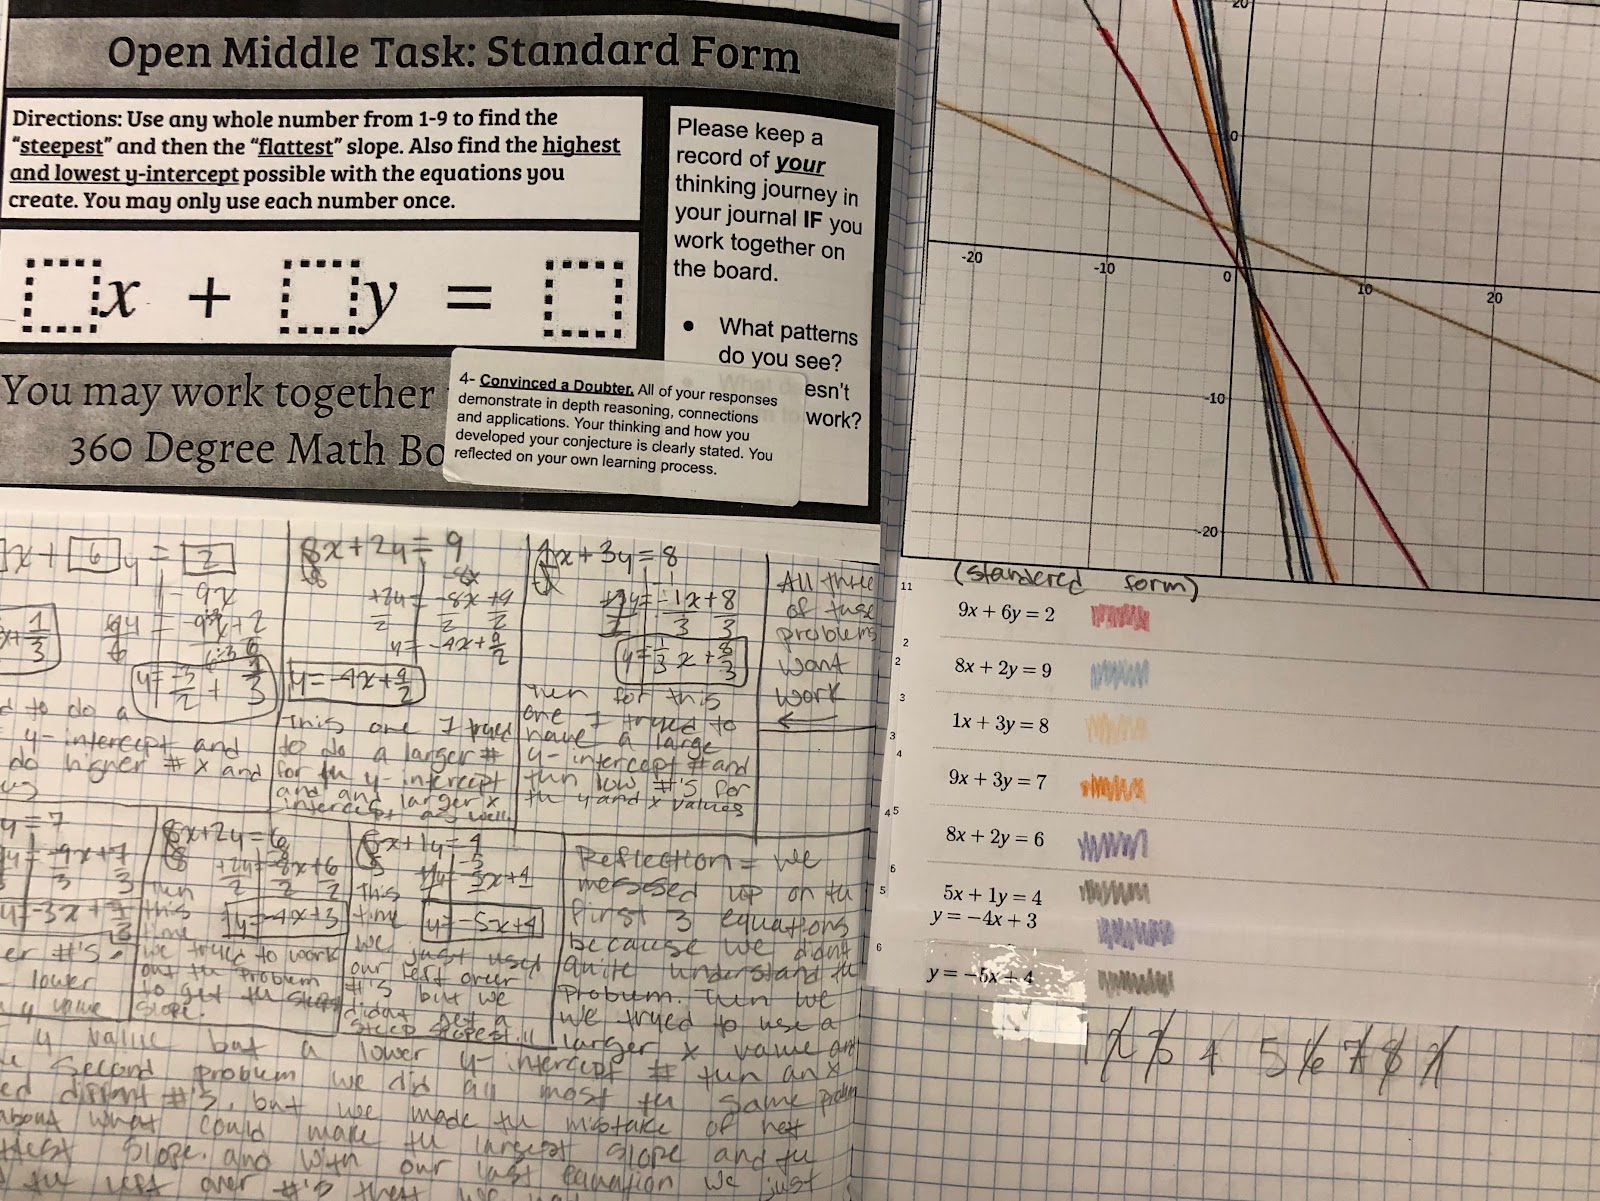 Open Middle Task: Standard Form
Directions: Use any whole number from 1-9 to find the
"steepest" and then the "flattest" slope. Also find the highest
and lowest y-intercept possible with the equations you
create. You may only use each number once.
x + y =
Please keep a
record of your
thinking journey in
your journal IF you
work together on
the board.
• What patterns
do you see?
esn't
work?
You may work together
360 Degree Math Bo
4- Convinced a Doubter. All of your responses
demonstrate in depth reasoning, connections
and applications. Your thinking and how you
developed your conjecture is clearly stated. You
reflected on your own learning process.
x + 6 y = 2
-9x
8x+2y=9
-8x
+2y = -8x+9
2 2 2
y=-4x+9/2
y=-4x+9/2
This one I tryed
to do a larger #
for the y-intercept
and larger x
intercept as well.
1x+3y=8
-1x+8
3 3
y=1/3x+8/3
Then for this
one I tryed to
have a large
y-intercept # and
then low #'s for
the y and x values
All three
of these
problems
wont
work
d to do a
y-intercept and
do higher # x and
y=7
-9x+7
3 3
y=-3x+7/3
er #'s.
lower
y value
8x+2y=6
+2y=-8x+6
2 2 2
y=-4x+3
Then
this
time
we tryed to work
out the problem
to get the steep
slope.
5x+1y=4
-5x+4
y=-5x+4
This
time
we just used
our left over
#'s but we
didnt get a
steep slopest.
Reflection = we
messed up on the
first 3 equations
because we didnt
quite understand the
problem. Then we
we tryed to use a
larger x value and
y value but a lower y-intercept # then an x
second problem we did all most the same problem
ed diffrent #'s. but we made the mistake of not
about what could make the largest slope and the
slope. and with our last equation we just
the left over #'s that we
20
0
-20
-10
0
10
20
-10
-20
(standered form)
11
9x + 6y = 2
2
2
8x + 2y = 9
3
1x + 3y = 8
3
4
9x + 3y = 7
4 5
8x + 2y = 6
6
5
5x + 1y = 4
y = −4x + 3
6
y = −5x + 4
1 2 3 4 5 6 7 8 9